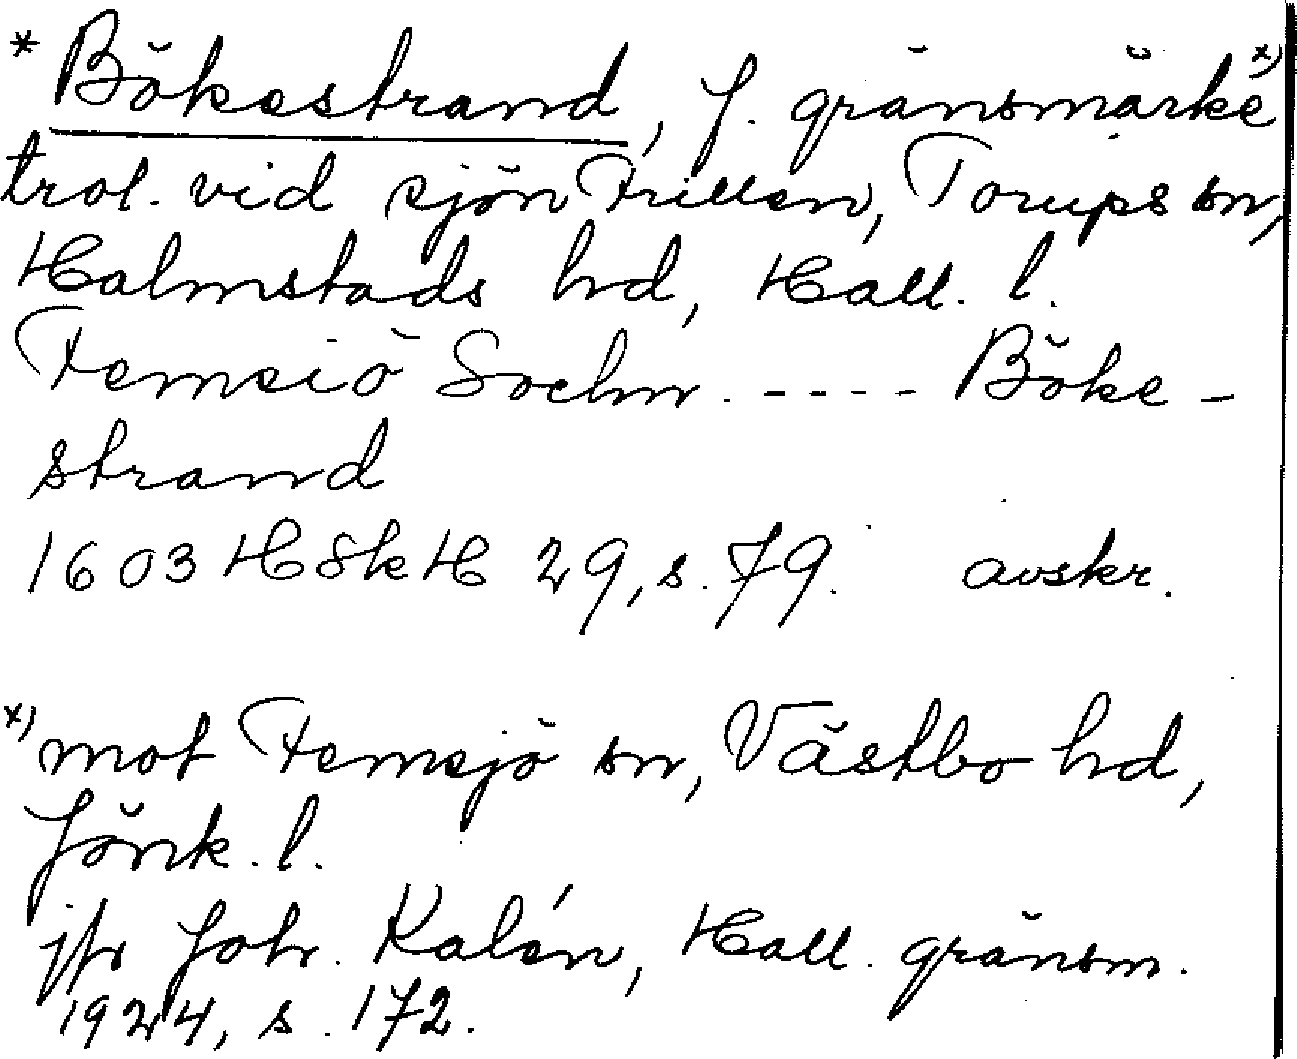 * Bökestrand, f. gränsmärke x)
trol. vid sjön Frillen, Torups sn,
Halmstads hd, Hall. l.
Femsiö Sochn. ---- Böke-
strand
1603 HSkH 29, s. 79. avskr.
x) mot Femsjö sn, Västbo hd,
Jönk. l.
jfr Joh. Kalén, Hall. gränsm.
1924, s. 172.